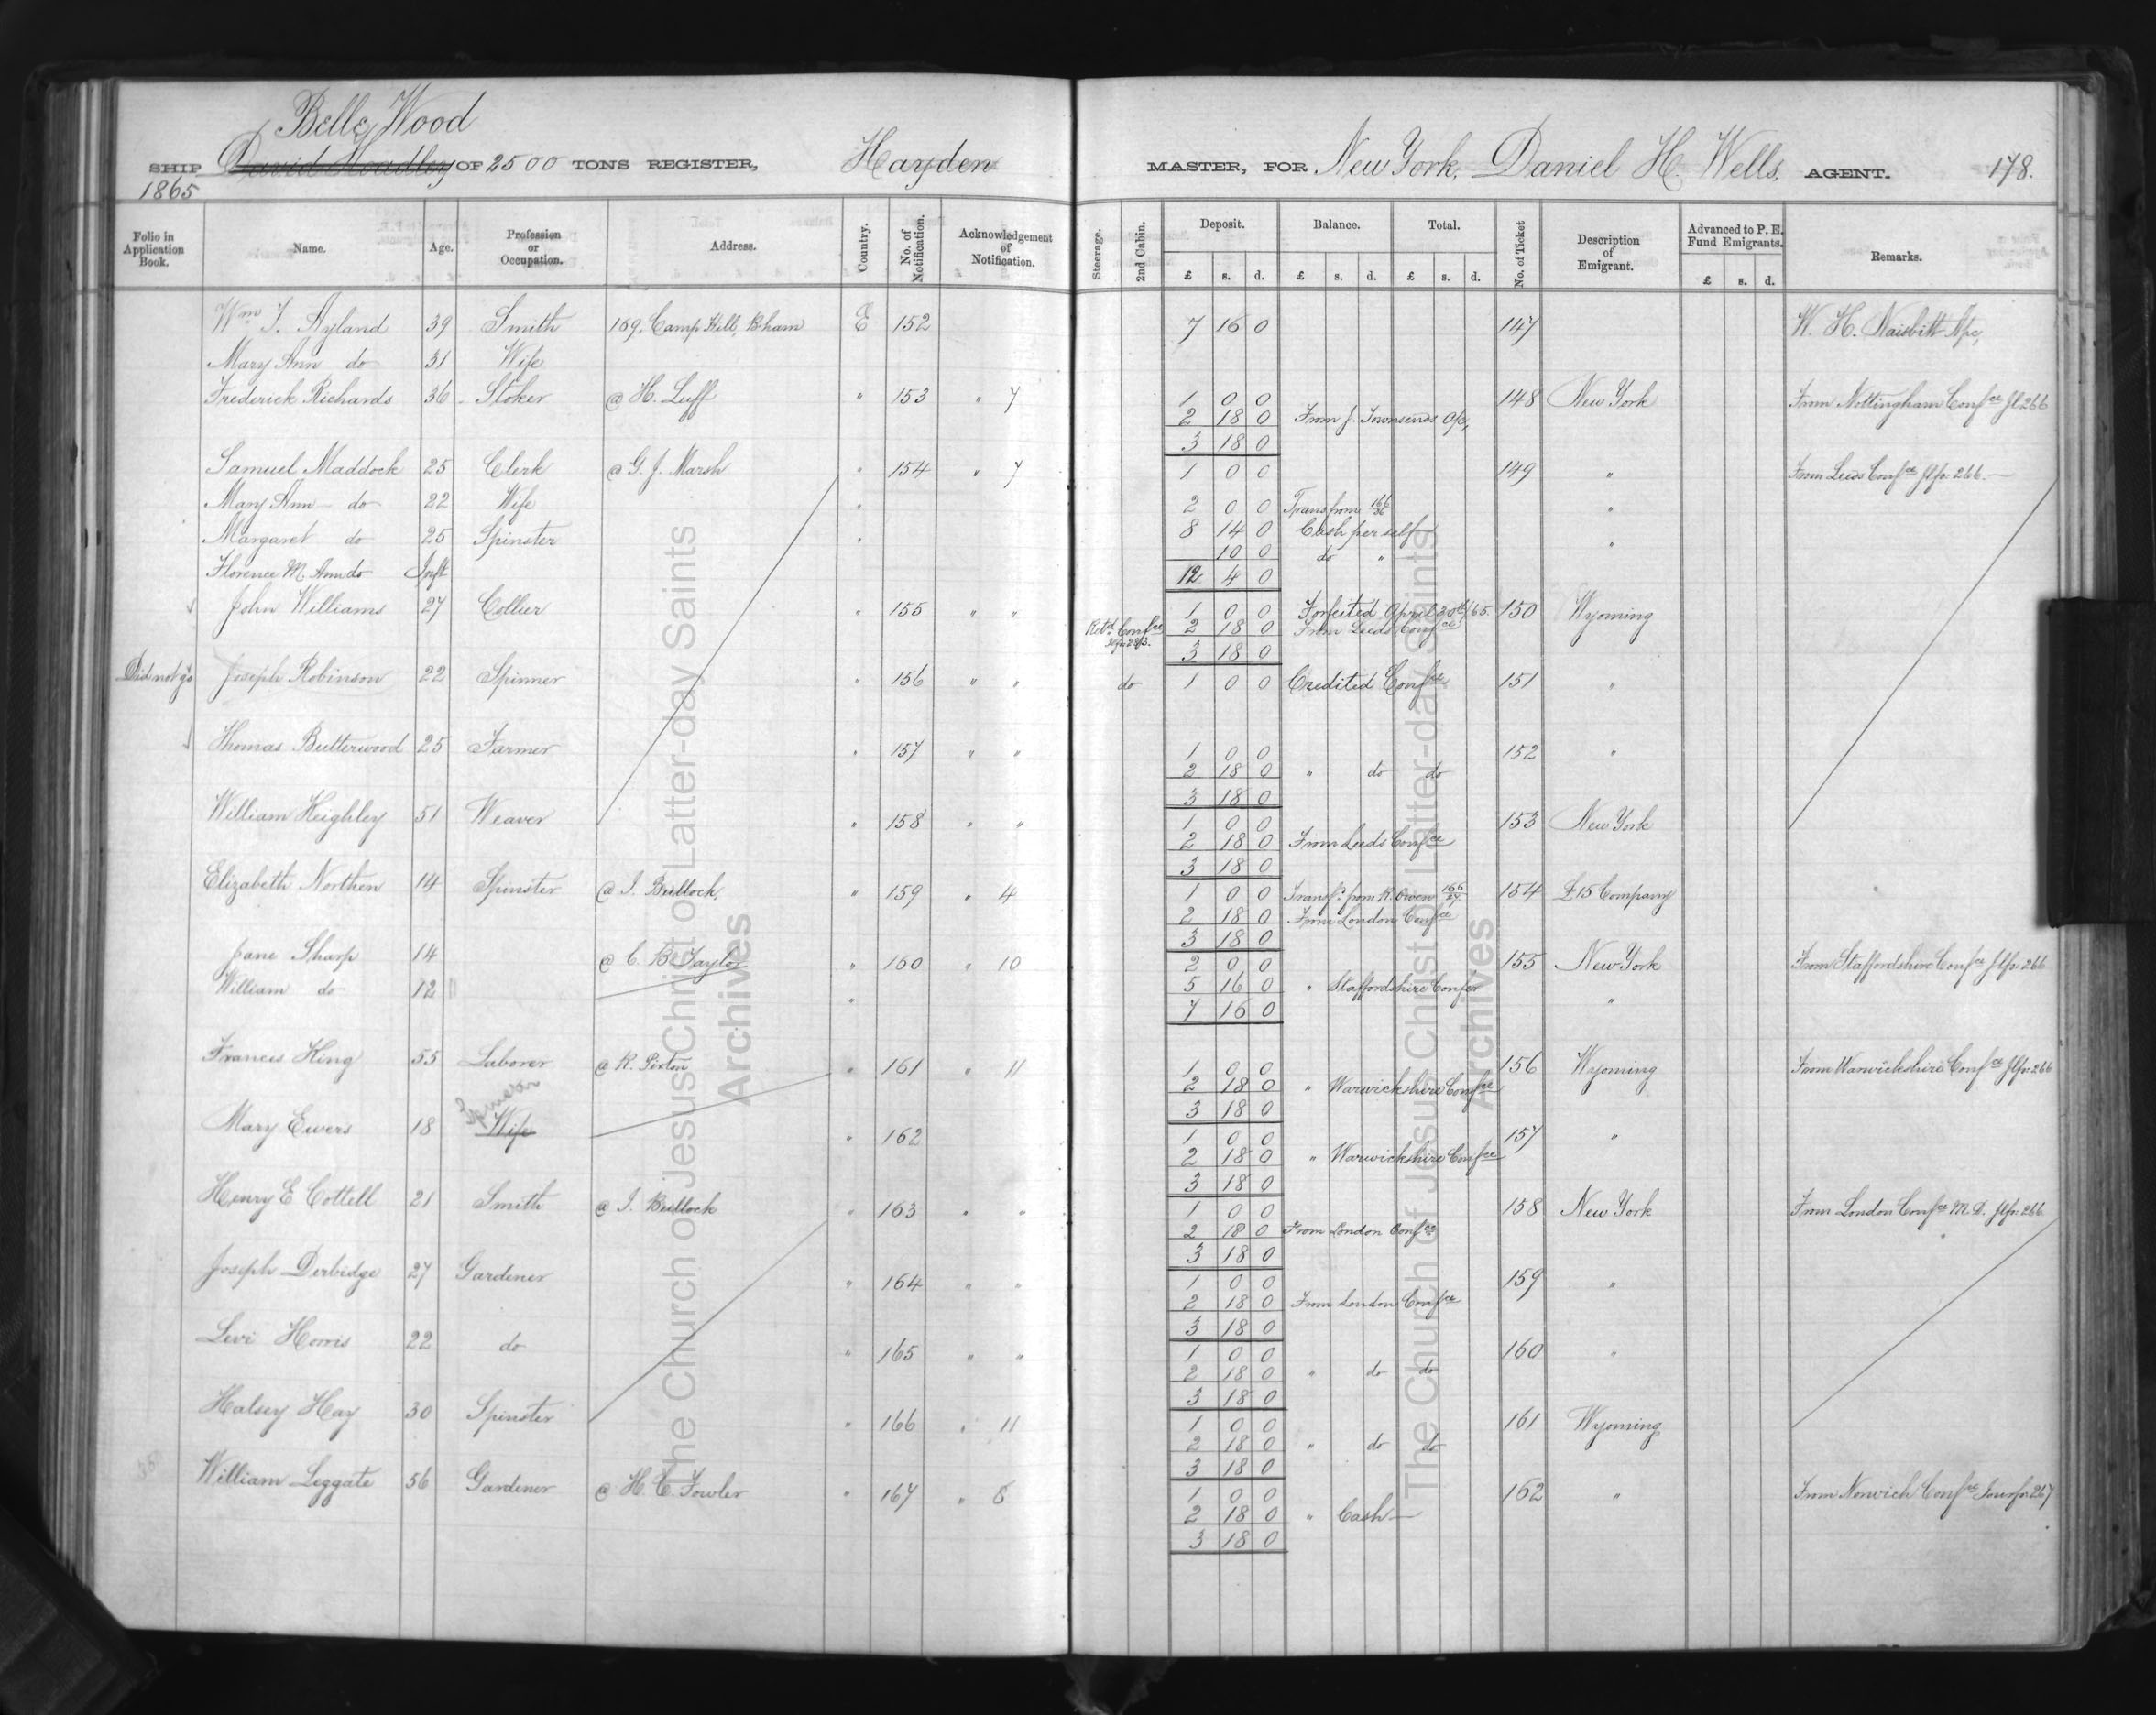 Belle Wood
SHIP David Hoadley OF 2500 TONS REGISTER, Hayden MASTER, FOR New York, Daniel H. Wells, AGENT. 178.
1865
Folio in Application Book. Name. Age. Profession or Occupation. Address. Country. No. of Notification. Acknowledgement of Notification. Steerage. 2nd Cabin. Deposit. Balance. Total. No. of Ticket Description of Emigrant. Advanced to P. E. Fund Emigrants. Remarks.
£ s. d. £ s. d. £ s. d. £ s. d.
Wm J. Ayland 39 Smith 169, Camp Hill, B.ham E 152 7 16 0 147 W. H. Naisbitt A/c,
Mary Ann do 31 Wife
Frederick Richards 36 Stoker @ H. Luff " 153 " 7 1 0 0 148 New York From Nottingham Confce Jl 266
2 18 0 From J. Townsends A/c,
3 18 0
Samuel Maddock 25 Clerk @ G. J. Marsh " 154 " 7 1 0 0 149 " From Leeds Confce Jl fo 266.
Mary Ann do 22 Wife " 2 0 0 Trans from 166/36 "
Margaret do 25 Spinster " 8 14 0 Cash per self "
10 0 do "
Florence M. Ann do Inft 12 4 0
John Williams 27 Collier " 155 " " 1 0 0 Forfeited April 20th/65. 150 Wyoming
Retd Confce 2 18 0 From Leeds Confce
3 18 0
Did not go Joseph Robinson 22 Spinner " 156 " " do 1 0 0 Credited Confce 151 "
Thomas Butterwood 25 Farmer " 157 " " 1 0 0 152 "
2 18 0 " do do
3 18 0
William Heighley 51 Weaver " 158 " " 1 0 0 153 New York
2 18 0 From Leeds Confce
3 18 0
Elizabeth Northen 14 Spinster @ J. Bullock, " 159 " 4 1 0 0 Transfd from R. Owen 166/27 154 £15 Company
2 18 0 From London Confce
3 18 0
Jane Sharp 14 @ C. B. Taylor " 160 " 10 2 0 0 155 New York From Staffordshire Confce Jl fo 266
William do 12 " 5 16 0 " Staffordshire Confer "
7 16 0
Francis King 55 Laborer @ R. Pixton " 161 " 11 1 0 0 156 Wyoming From Warwickshire Confce Jl fo 266
2 18 0 " Warwickshire Confce
3 18 0
Spinster
Mary Ewers 18 Wife " 162 1 0 0 157 "
2 18 0 " Warwickshire Confce
3 18 0
Henry E Cottell 21 Smith @ J. Bullock " 163 " " 1 0 0 158 New York From London Confce M. D. Jl fo 266
2 18 0 From London Confce
3 18 0
Joseph Derbidge 27 Gardener " 164 " " 1 0 0 159 "
2 18 0 From London Confce
3 18 0
Levi Horris 22 do " 165 " " 1 0 0 160 "
2 18 0 " do do
3 18 0
Halsey Hay 30 Spinster " 166 " 11 1 0 0 161 Wyoming
2 18 0 " do do
3 18 0
William Leggate 56 Gardener @ H. C. Fowler " 167 " 8 1 0 0 162 " From Norwich Confce Jour fo 267
2 18 0 " Cash
3 18 0
The Church of Jesus Christ of Latter-day Saints
Archives
The Church of Jesus Christ of Latter-day Saints
Archives